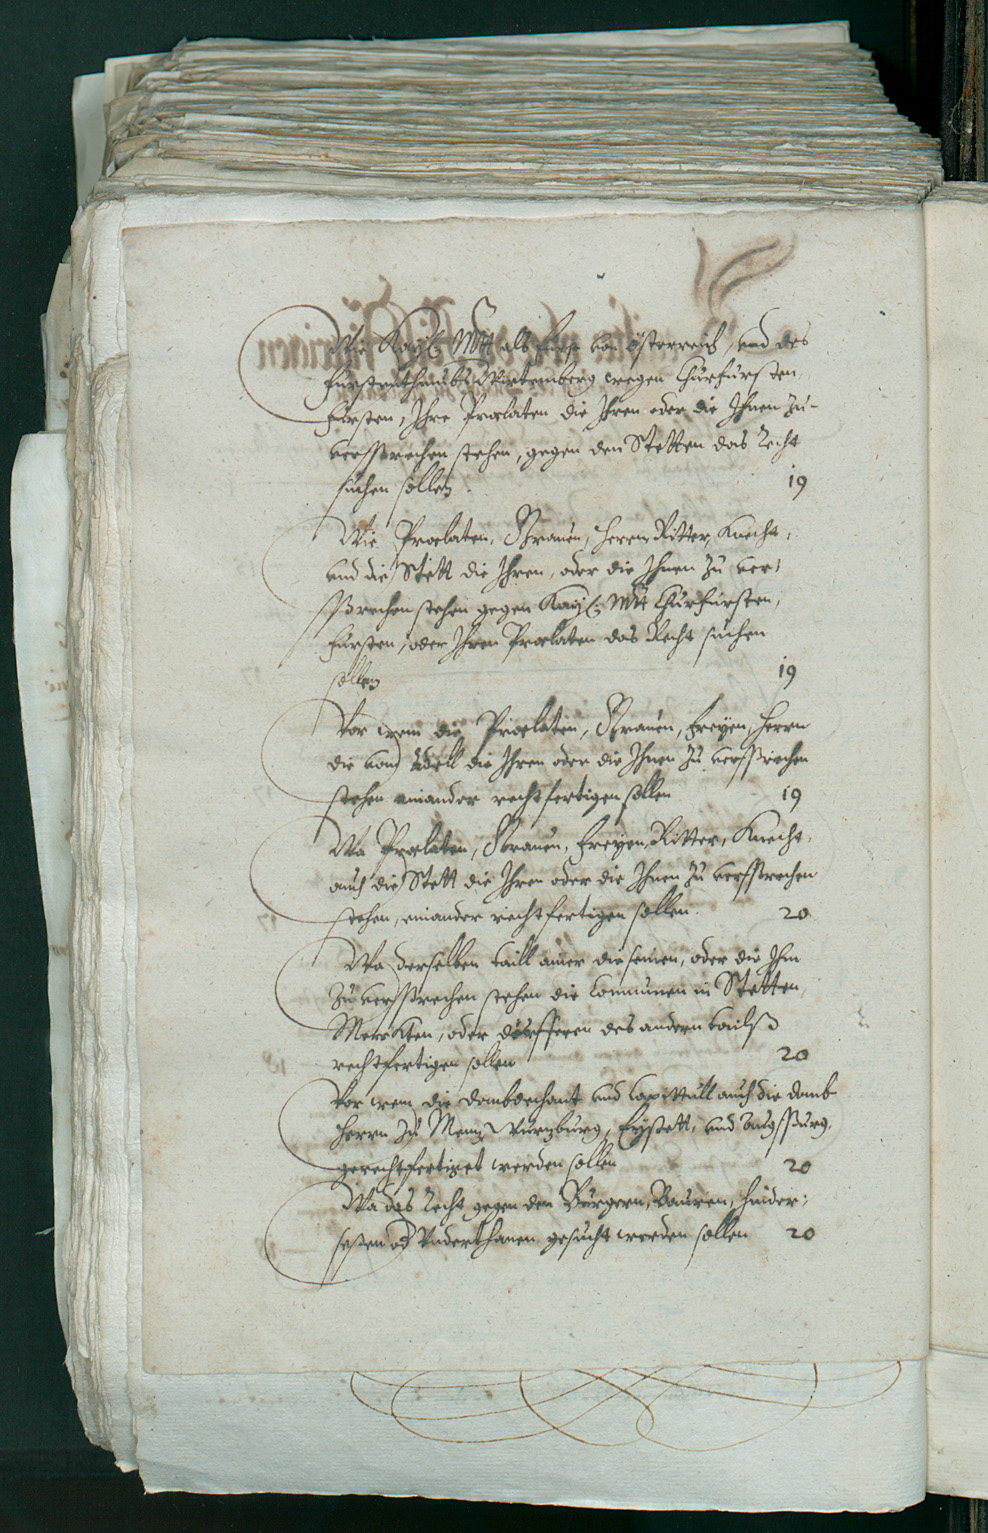 Wie Kay: Mtt als Fürst von Österreich, vnd des
Fürstenthumbs Wirtemberg wegen Churfürsten
Fürsten, Ihre Praelaten die Ihren oder die Ihnen zu-
versprechen stehen, gegen den Stetten das Recht
suchen sollen. 19
Wie Praelaten, Grauen, Herrn, Ritter, Knecht,
vnd die Stett die Ihren, oder die Ihnen zu ver:
sprechen stehen gegen Kay: Mtt Churfürsten,
Fürsten, oder Ihren Praelaten das Recht suchen
sollen 19
Vor wem die Praelaten, Grauen, Freyen, Herrn
die vom Adell die Ihren oder die Ihnen zu versprechen
stehen einander rechtfertigen sollen 19
Wa Praelaten, Grauen, Freyen, Ritter, Knecht,
auch die Stett die Ihren oder die Ihnen zu versprechen
stehen, einander rechtfertigen sollen. 20
Wa derselben taill ainer die seinen, oder die Ihm
zu versprechen stehen die Communen in Stetten,
Merckten, oder dörfferen des andern tailß
rechtfertigen sollen 20
Vor wem die dombdechant vnd Capittull auch die domb-
herrn zu Menz, Wurzburg, Eystett, vnd Augspurg,
gerechtfertiget werden sollen 20
Wa das Recht gegen den Burgern, Bauren, hinder:
seßen od Vnderthanen gesucht werden sollen 20